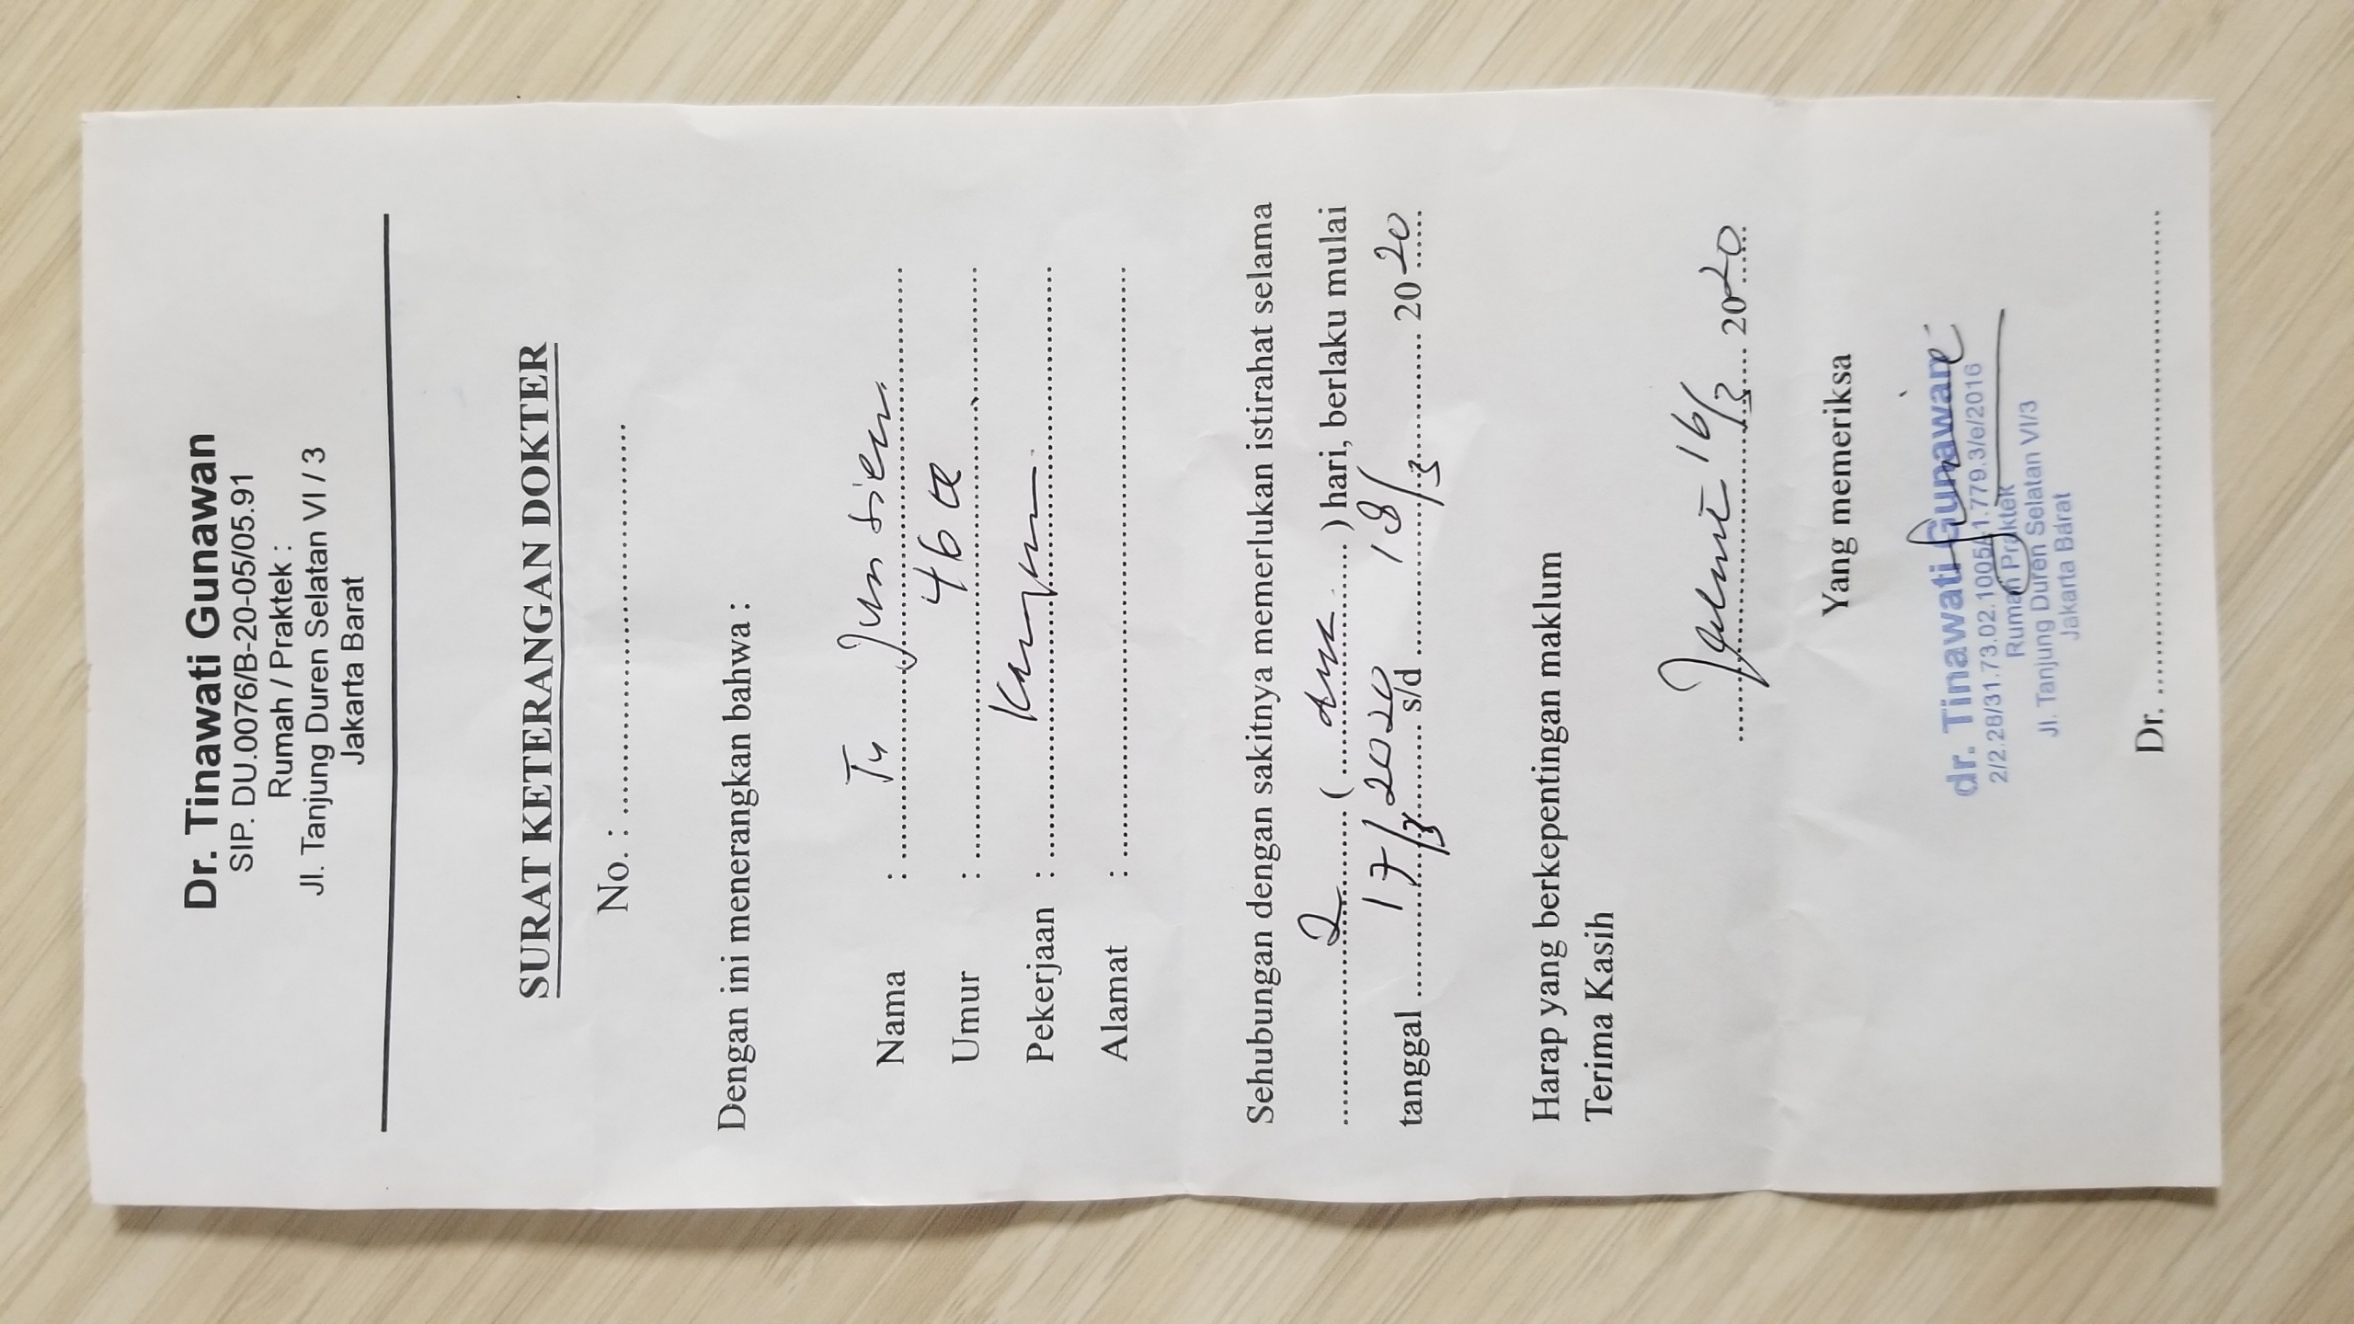 Dr. Tinawati Gunawan
SIP. DU.0076/B-20-05/05.91
Rumah / Praktek :
Jl. Tanjung Duren Selatan VI / 3
Jakarta Barat
SURAT KETERANGAN DOKTER
No. : ......................................
Dengan ini menerangkan bahwa :
Nama : Jun
Umur : 46
Pekerjaan :
Alamat : ..........................................................
Sehubungan dengan sakitnya memerlukan istirahat selama
2 ( dua ) hari, berlaku mulai
tanggal 17/3 2020 s/d 18/3 2020
Harap yang berkepentingan maklum
Terima Kasih
16/3 2020
Yang memeriksa
dr. Tinawati Gunawan
Rumah Praktek
Jl. Tanjung Duren Selatan VI/3
Jakarta Barat
Dr. ................................................